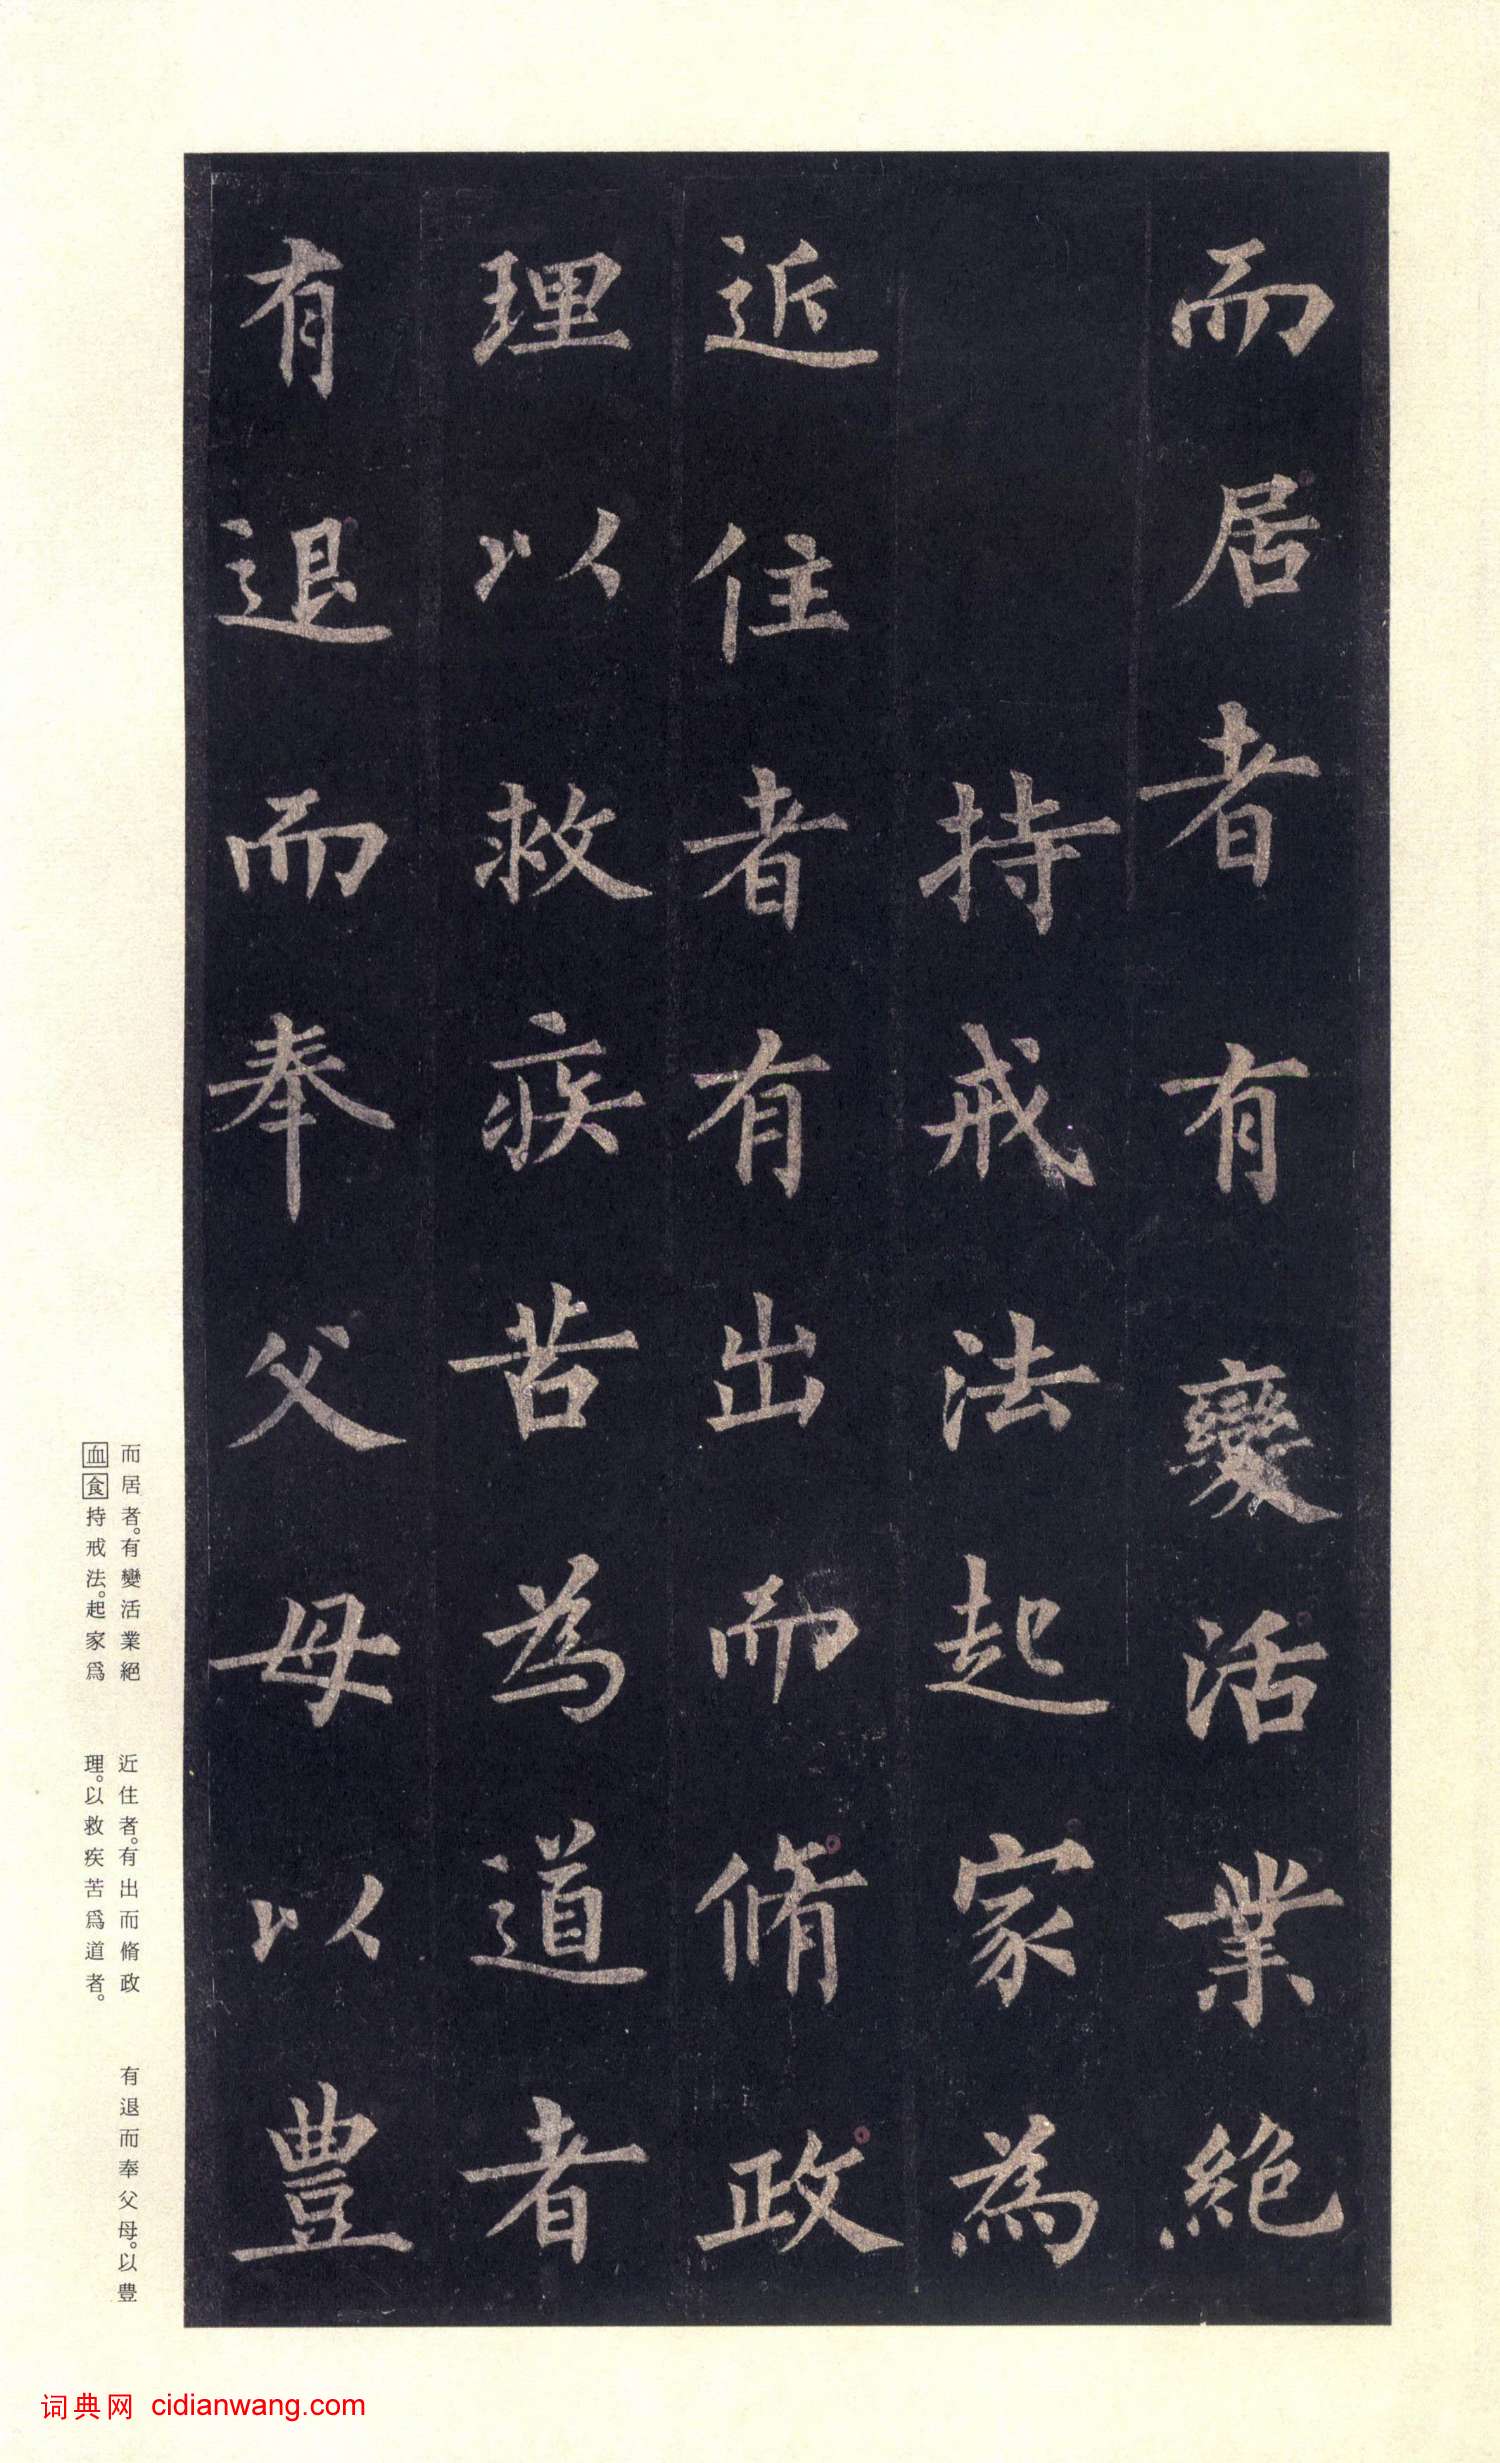 而居者有變活業絕
持戒法起家為
近住者有出而脩政
理以救疾苦為道者
有退而奉父母以豊
而居者。有變活業絕
血食持戒法。起家爲
近住者。有出而脩政
理。以救疾苦爲道者。
有退而奉父母。以豊
词典网 cidianwang.com